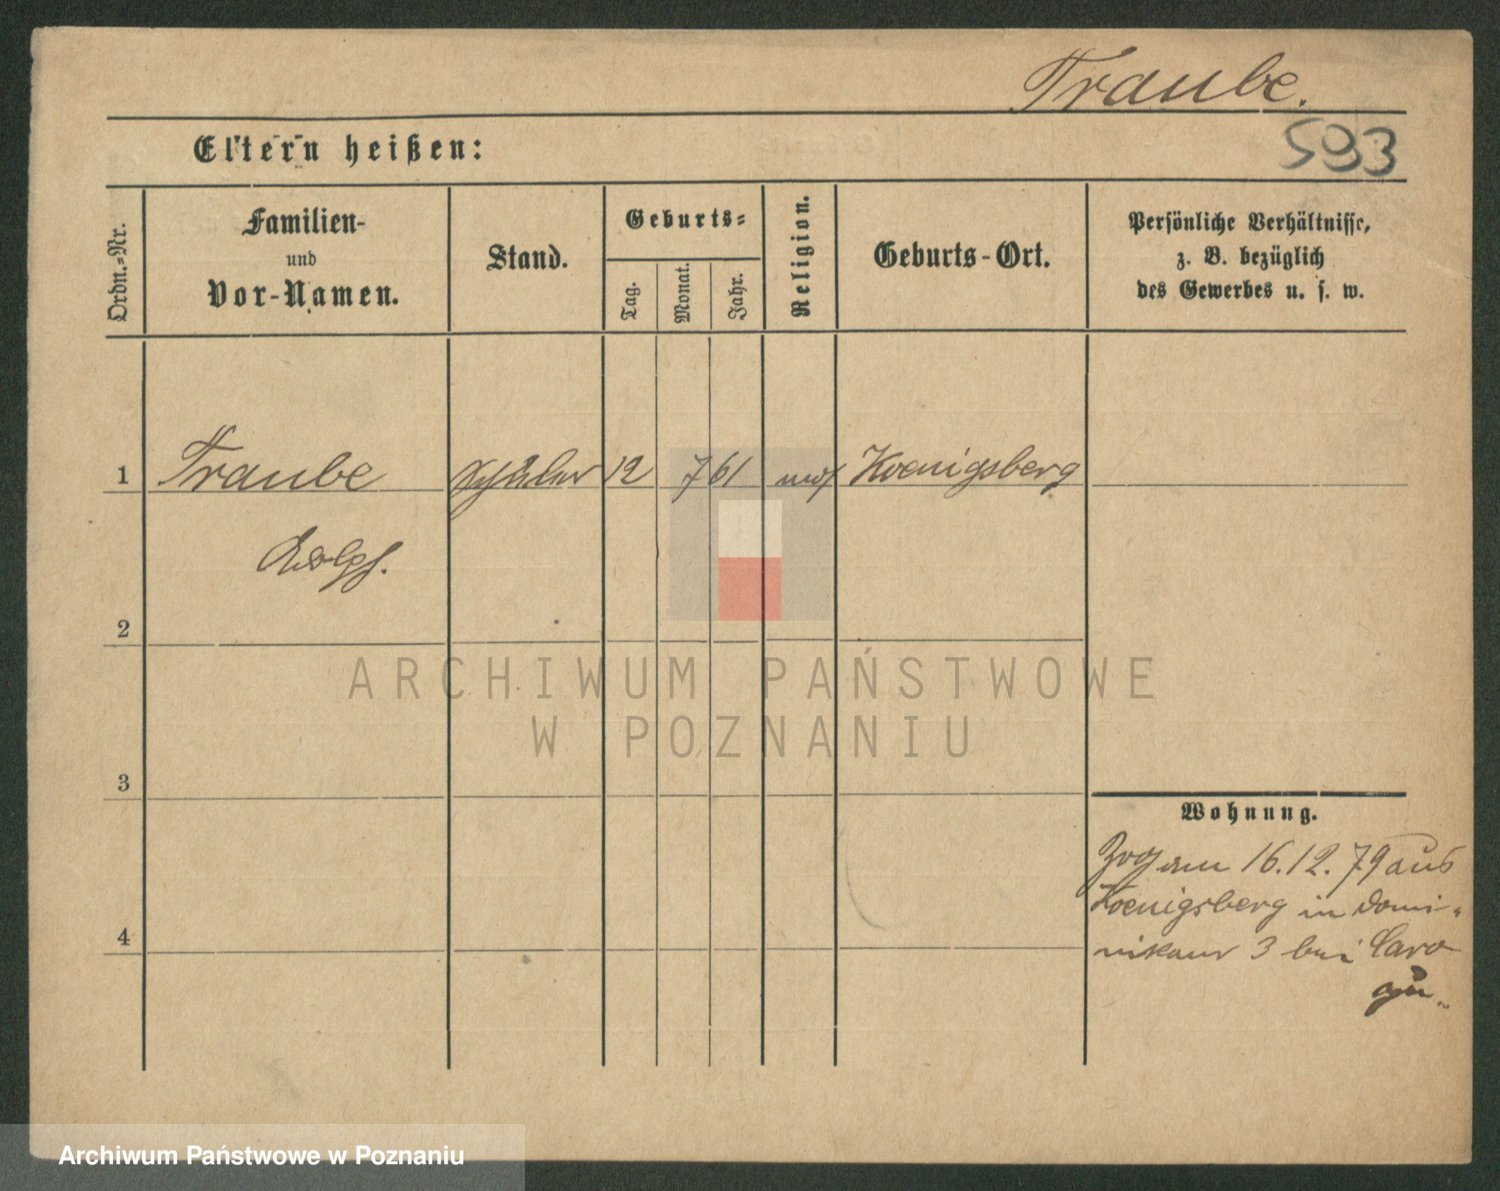 Traube.
593
Eltern heißen:
Ordn.-Nr.
Familien-
und
Vor-Namen.
Stand.
Geburts-
Tag.
Monat.
Jahr.
Religion.
Geburts-Ort.
Persönliche Verhältnisse,
z. B. bezüglich
des Gewerbes u. s. w.
1 Traube Schüler 12 7 61 mos Koenigsberg
Adolf.
2
ARCHIWUM PAŃSTWOWE
W POZNANIU
3
Wohnung.
Zog am 16.12.79 aus
Koenigsberg in Domi-
nikaner 3 bei Caro
4
Archiwum Państwowe w Poznaniu